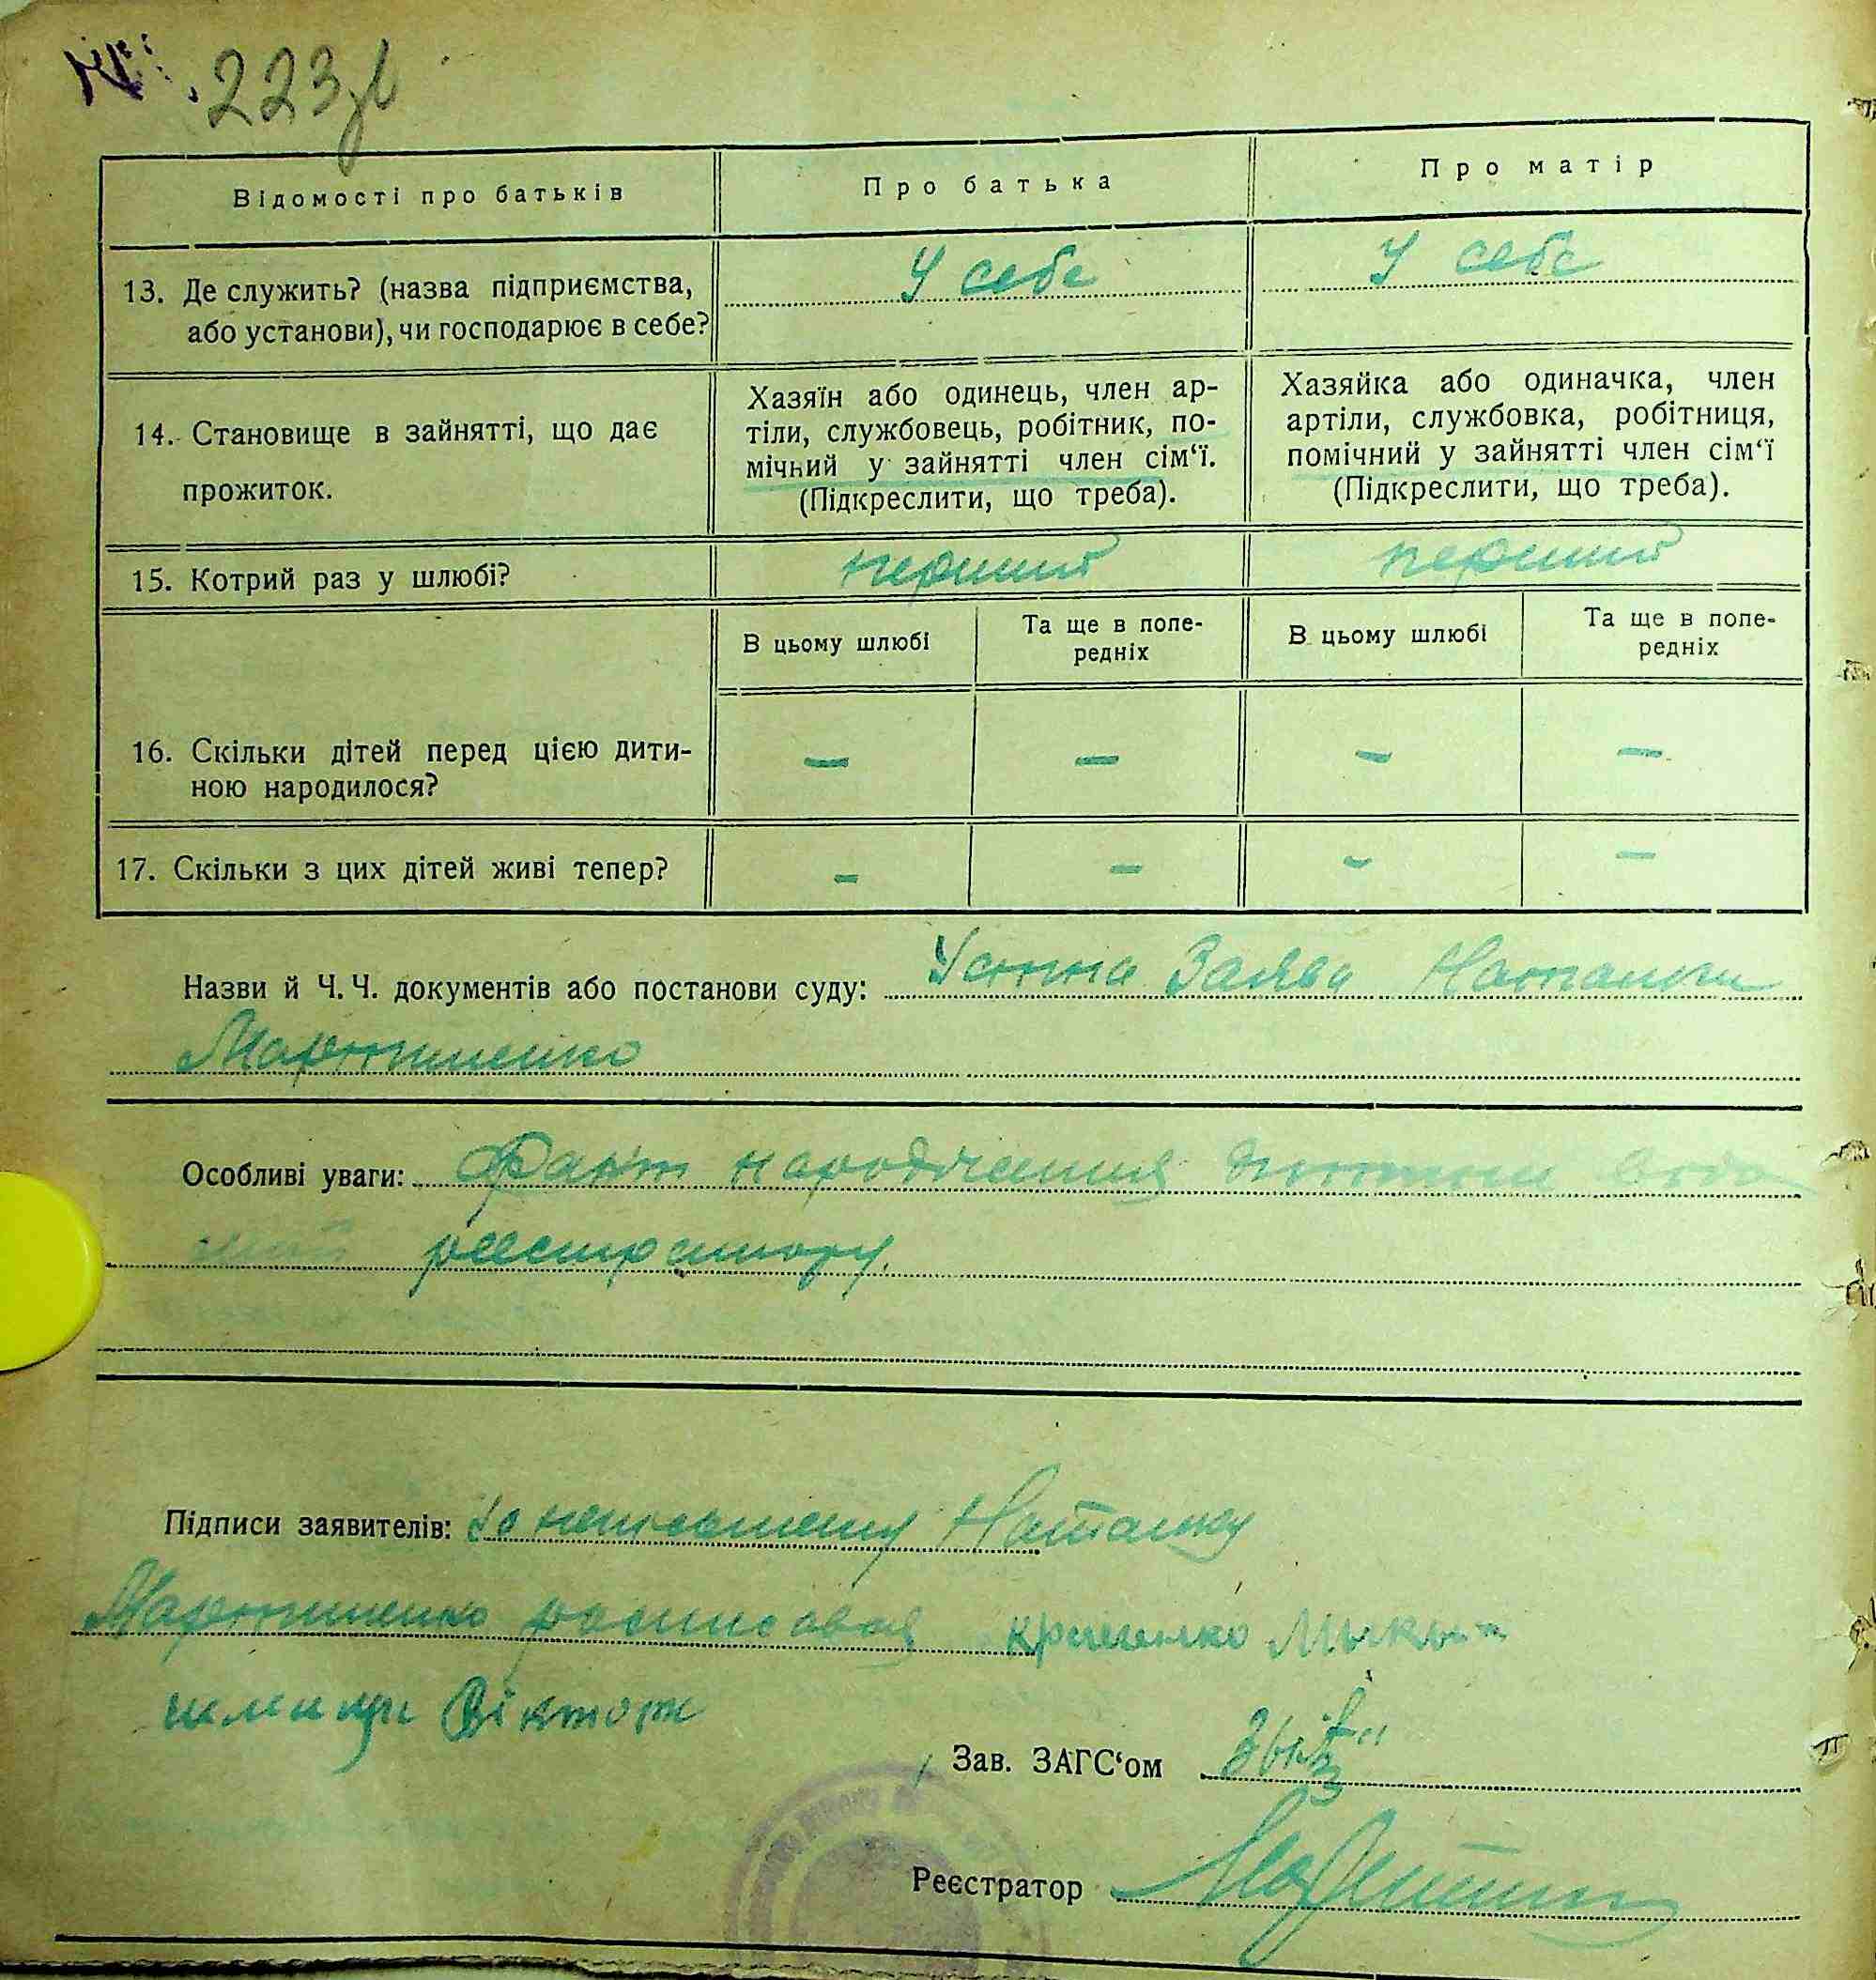 № 223зв
Відомості про батьків
Про батька
Про матір
13. Де служить? (назва підприємства,
або установи), чи господарює в себе?
У себе
У себе
14. Становище в зайнятті, що дає
прожиток.
Хазяїн або одинець, член ар-
тіли, службовець, робітник, по-
мічний у зайнятті член сім‘ї.
(Підкреслити, що треба).
Хазяйка або одиначка, член
артіли, службовка, робітниця,
помічний у зайнятті член сім‘ї
(Підкреслити, що треба).
15. Котрий раз у шлюбі?
перший
перший
В цьому шлюбі
Та ще в попе-
редніх
В цьому шлюбі
Та ще в попе-
редніх
16. Скільки дітей перед цією дити-
ною народилося?
— — — —
17. Скільки з цих дітей живі тепер?
— — — —
Назви й Ч. Ч. документів або постанови суду: Устна Заява
Мартиненко
Особливі уваги: Факт народження
реєстратору.
Підписи заявителів: За неписьмену Наталку
Мартиненко росписався
Віктор
Зав. ЗАГС‘ом
Реєстратор